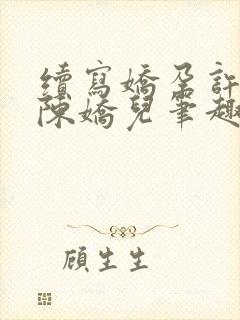 續寫嬌孕許
陳嬌兒筆趣
顧生生